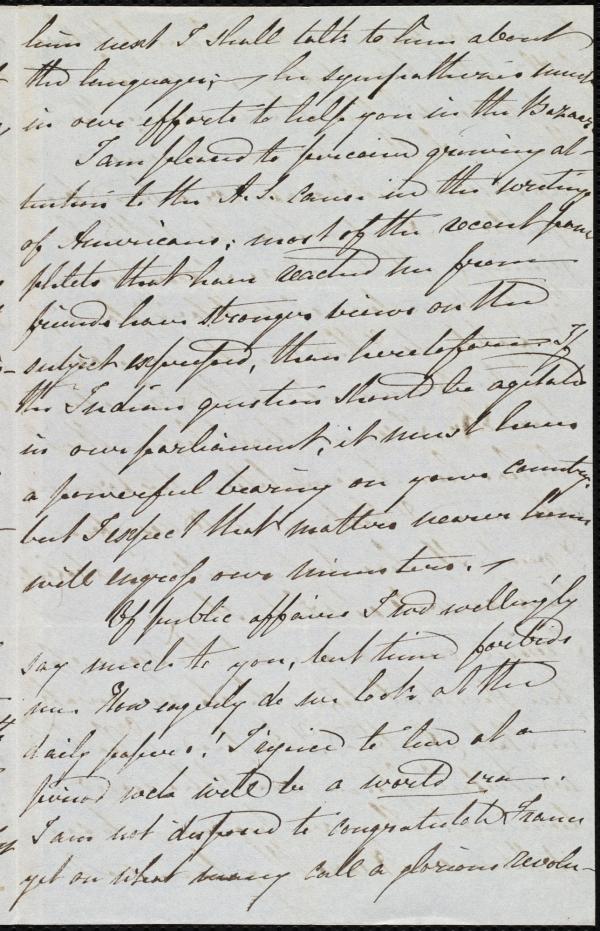 him next I shall talk to him about
the languages; – he sympathises much
in our efforts to help you in the Bazaar.
I am pleased to perceive growing at-
tention to the A.S. cause in the writings
of Americans; most of the recent pam
phlets that have reached me from
friends have stronger views on the
subject expressed, than heretofore. If
the Indian question should be agitated
in our parliament, it must have
a powerful bearing on your country.
but I expect that matters nearer home
will engross our ministers. –
Of public affairs I wd willingly
say much to you, but time forbids
me. How eagerly do we look at the
daily papers! I rejoice to live at a
period wch will be a world era.
I am not disposed to congratulate France
yet on what many call a glorious revolu-